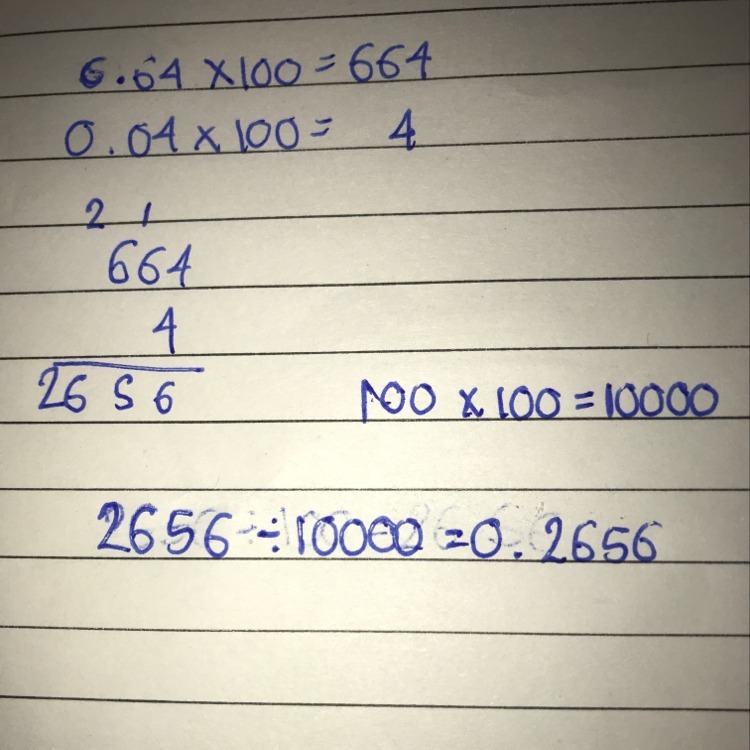 6.64 ×100=664
0.04×100= 4
2 1
664
4
2656
100 ×100=10000
2656÷10000=0.2656